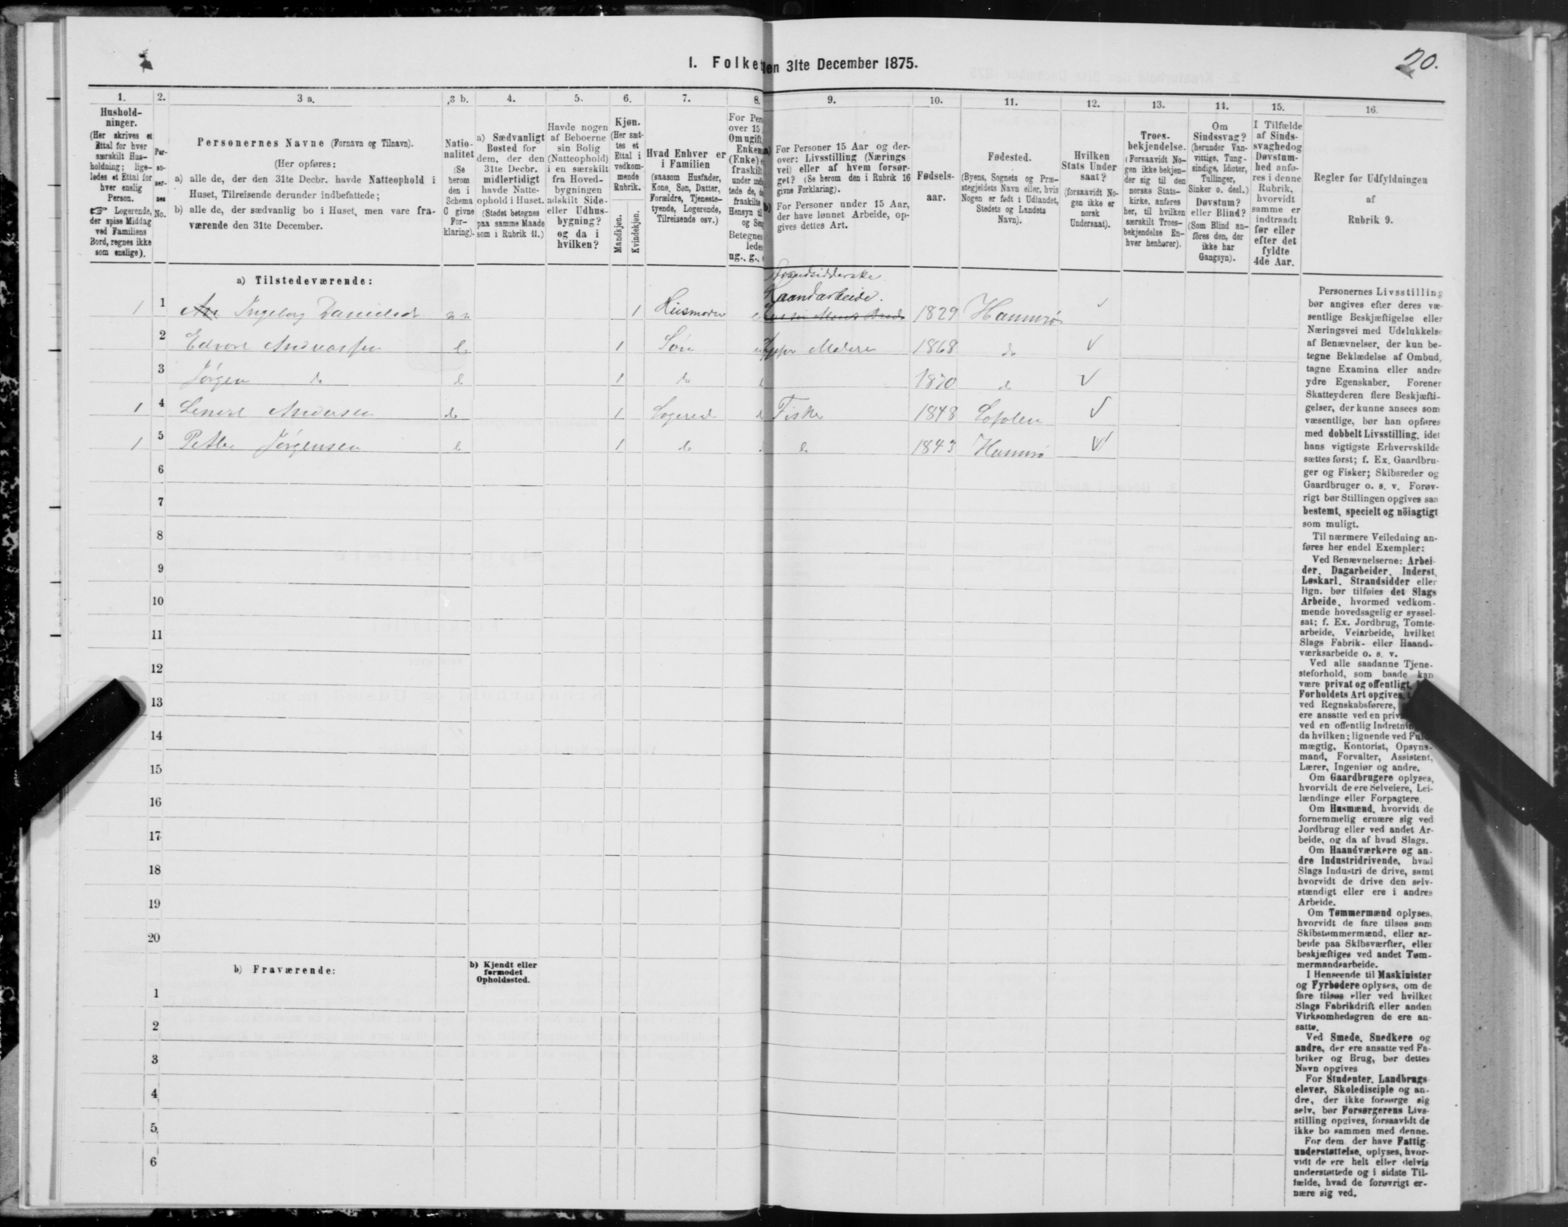 20.
1. Folke en 31te December 1875.
1. 2. 3 a. 3 b. 4. 5. 6. 7. 8. 9. 10. 11. 12. 13. 14. 15. 16.
Hushold-
ninger.
(Her skrives et
Ettal for hver
særskilt Hus-
holdning; lige-
ledes et Ettal for
hver enslig
Person.
Logerende,
der spise Middag
ved Familiens
Bord, regnes ikke
som enslige).
Per-
so-
ner-
nes
No.
Personernes Navne (Fornavn og Tilnavn).
(Her opføres:
a) alle de, der den 31te Decbr. havde Natteophold i
Huset, Tilreisende derunder indbefattede;
b) alle de, der sædvanlig bo i Huset, men vare fra-
værende den 31te December.
Natio-
nalitet
(Se
herom
den i
Schema
C givne
For-
klaring).
a) Sædvanligt
Bosted for
dem, der den
31te Decbr.
midlertidigt
havde Natte-
ophold i Huset.
(Stedet betegnes
paa samme Maade
som i Rubrik 11.)
Havde nogen
af Beboerne
sin Bolig
(Natteophold)
i en særskilt
fra Hoved-
bygningen
adskilt Side-
eller Udhus-
bygning?
og da i
hvilken?
Kjøn.
(Her sæt-
tes et
Ettal i
vedkom-
mende
Rubrik.
Mandkjøn.
Kvindekjøn.
Hvad Enhver er
i Familien
(saasom Husfader,
Kone, Søn, Datter,
Forældre, Tjeneste-
tyende, Logerende,
Tilreisende osv.)
For Per
over 15
Om ugift,
Enkem
(Enke) e
fraskilt
under
tede de,
fraskilte
Hensyn ti
og Se
Betegne
lede
ug., g.,
For Personer 15 Aar og der-
over: Livsstilling (Nærings
vei) eller af hvem forsør-
get? (Se herom den i Rubrik 16
givne Forklaring).
For Personer under 15 Aar,
der have lønnet Arbeide, op-
gives dettes Art.
Fødsels-
aar.
Fødested.
(Byens, Sognets og Præ-
stegjeldets Navn eller, hvis
Nogen er født i Udlandet,
Stedets og Landets
Navn).
Hvilken
Stats Under
saat?
(forsaavidt No-
gen ikke er
norsk
Undersaat).
Troes-
bekjendelse.
(Forsaavidt No-
gen ikke bekjen-
der sig til den
norske Stats-
kirke, anføres
her, til hvilken
særskilt Troes-
bekjendelse En-
hver henhører).
Om
Sindssvag?
(herunder Van-
vittige, Tung-
sindige, Idioter,
Tullinger,
Sinker o. desl.)
Døvstum?
eller Blind?
(Som Blind an-
føres den, der
ikke har
Gangsyn).
I Tilfælde
af Sinds-
svaghed og
Døvstum-
hed anfø-
res i denne
Rubrik,
hvorvidt
samme er
indtraadt
før eller
efter det
fyldte
4de Aar.
Regler for Udfyldningen
af
Rubrik 9.
a) Tilstedeværende:
Haandarbeide.
1 1 Ingeborg Danielsd n 1 Husmoder 1829 Hammerø
2 Edvart Andreassen d 1 Søn 1868 do
3 Jørgen do d 1 do 1870 d
1 4 Lenert Andersen do 1 Logerend Fisker 1848 Lofoten
1 5 Petter Jørgensen d 1 do d 1843 Hammerø
6
7
8
9
10
11
12
13
14
15
16
17
18
19
20
b) Fraværende:
b) Kjendt eller
formodet
Opholdssted.
1
2
3
4
5
6
Personernes Livsstilling
bør angives efter deres væ-
sentlige Beskjæftigelse eller
Næringsvei med Udelukkelse
af Benævnelser, der kun be-
tegne Beklædelse af Ombud,
tagne Examina eller andre
ydre Egenskaber. Forener
Skatteyderen flere Beskjæfti-
gelser, der kunne ansees som
væsentlige, bør han opføres
med dobbelt Livsstilling, idet
hans vigtigste Erhvervskilde
sættes først; f. Ex. Gaardbru-
ger og Fisker; Skibsreder og
Gaardbruger o. s. v. Forøv-
rigt bør Stillingen opgives saa
bestemt, specielt og nöiagtigt
som muligt.
Til nærmere Veiledning an-
føres her endel Exempler:
Ved Benævnelserne: Arbei-
der, Dagarbeider, Inderst,
Løskarl, Strandsidder eller
lign. bør tilføies det Slags
Arbeide, hvormed vedkom-
mende hovedsagelig er syssel-
sat; f. Ex. Jordbrug, Tomte-
arbeide, Veiarbeide, hvilket
Slags Fabrik- eller Haand-
værksarbeide o. s. v.
Ved alle saadanne Tjene-
steforhold, som baade kan
være privat og offentligt,
Forholdets Art opgives,
ved Regnskabsførere,
ere ansatte ved en priv
ved en offentlig Indretn
da hvilken; lignende ved Ful
mægtig, Kontorist, Opsyns-
mand, Forvalter, Assistent,
Lærer, Ingeniør og andre.
Om Gaardbrugere oplyses,
hvorvidt de ere Selveiere, Lei-
lændinge eller Forpagtere.
Om Husmænd, hvorvidt de
fornemmelig ernære sig ved
Jordbrug eller ved andet Ar-
beide, og da af hvad Slags.
Om Haandværkere og an-
dre Industridrivende, hvad
Slags Industri de drive, samt
hvorvidt de drive den selv-
stændigt eller ere i andres
Arbeide.
Om Tømmermænd oplyses,
hvorvidt de fare tilsøs som
Skibstømmermænd, eller ar-
beide paa Skibsværfter, eller
beskjæftiges ved andet Tøm-
mermandsarbeide.
I Henseende til Maskinister
og Fyrbødere oplyses, om de
fare tilsøs eller ved hvilket
Slags Fabrikdrift eller anden
Virksomhedsgren de ere an-
satte.
Ved Smede, Snedkere og
andre, der ere ansatte ved Fa-
briker og Brug, bør dettes
Navn opgives
For Studenter, Landbrugs-
elever, Skoledisciple og an-
dre, der ikke forsørge sig
selv, bør Forsørgerens Livs-
stilling opgives, forsaavidt de
ikke bo sammen med denne.
For dem, der have Fattig-
understøttelse, oplyses, hvor-
vidt de ere helt eller delvis
understøttede og i sidste Til-
fælde, hvad de forøvrigt er-
nære sig ved.